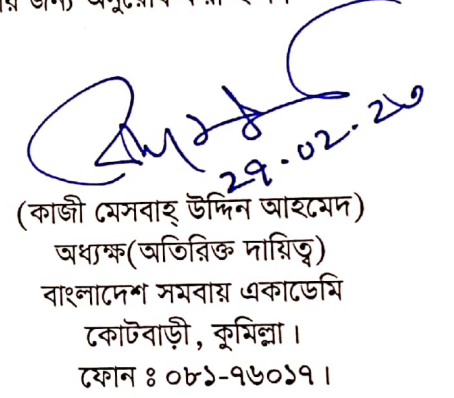 জন্য অনুরোধ করা
(কাজী মেসবাহ্ উদ্দিন আহমেদ)
অধ্যক্ষ(অতিরিক্ত দায়িত্ব)
বাংলাদেশ সমবায় একাডেমি
কোটবাড়ী, কুমিল্লা।
ফোন ঃ ০৮১-৭৬০১৭।